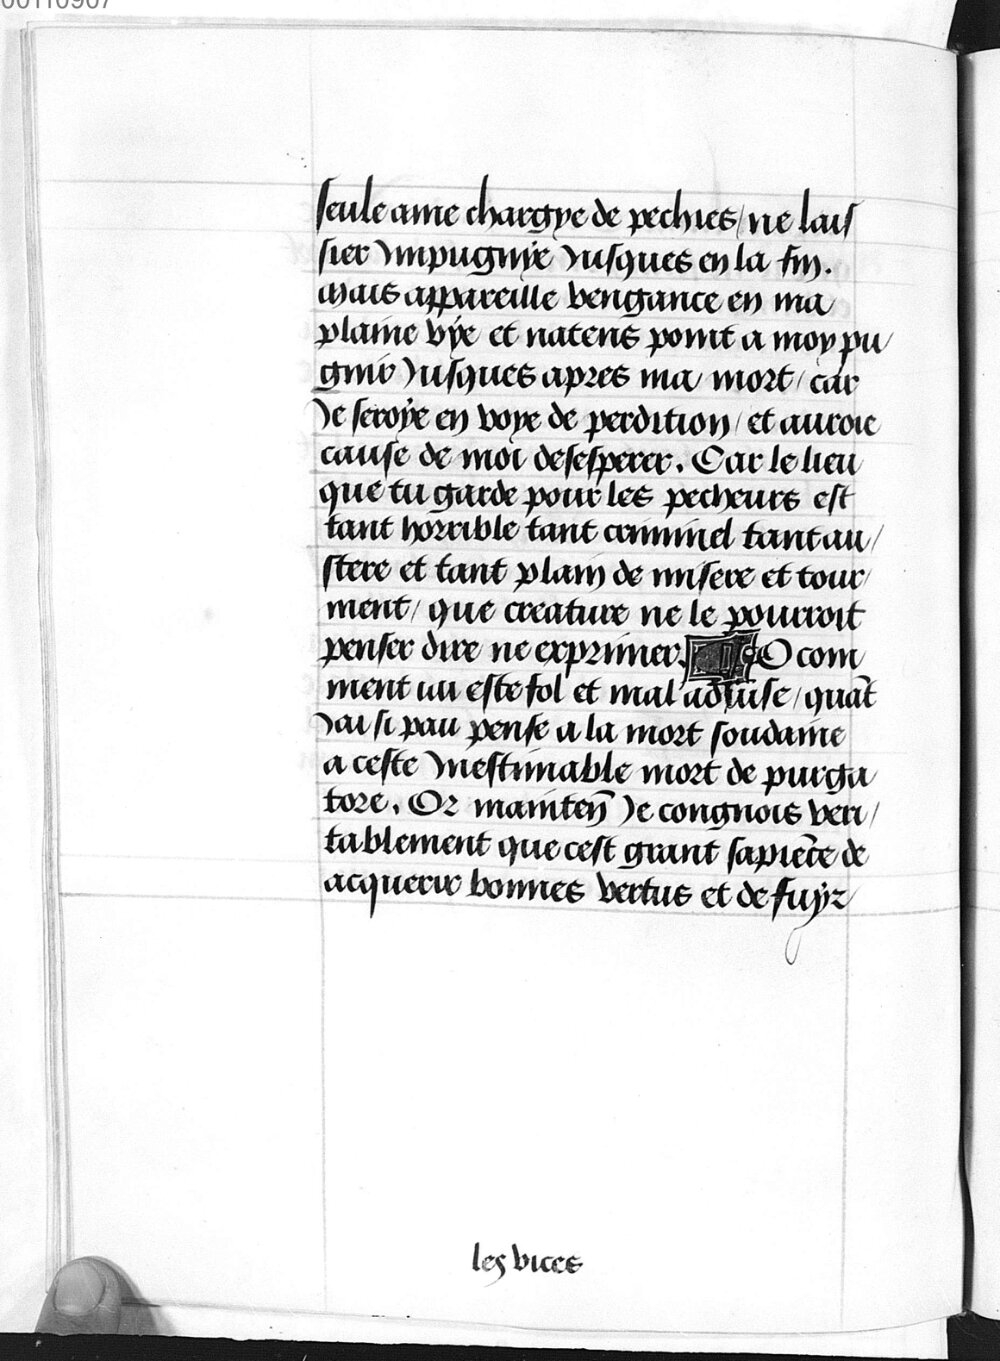 00110907
seule ame chargye de pechies / ne lais
sier Impugnye Iusques en la fin.
Mais appareille vengance en ma
plaine vye et natens point a moy pu
gnir Iusques apres ma mort / car
Ie seroye en voye de perdition / et auroie
cause de moi desesperer. Car le lieu
que tu garde pour les pecheurs est
tant horrible tant criminel tant au /
stere et tant plain de misere et tour /
ment / que creature ne le pourroit
penser dire ne exprimer. O com
ment iai este fol et mal aduise / quāt
Iai si pau pense a la mort soudaine
a ceste Inestimable mort de purga
tore. Or mainteñ Ie congnois veri /
tablement que cest grant sapiēce de
acquerir bonnes vertus et de fuyr
les vices